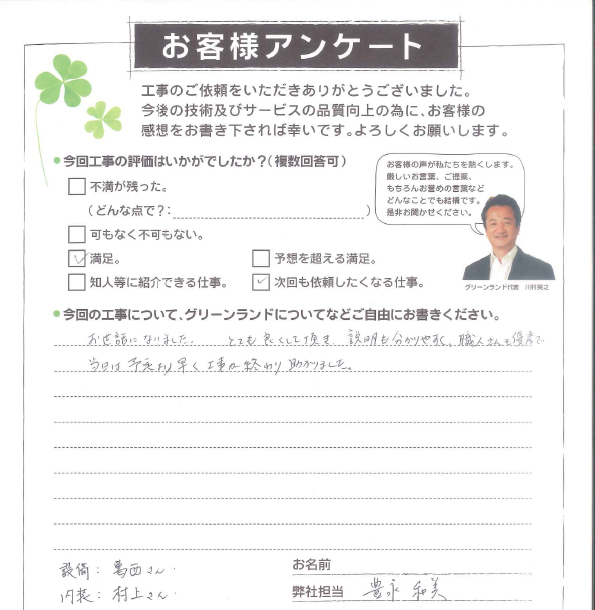 お客様アンケート
工事のご依頼をいただきありがとうございました。
今後の技術及びサービスの品質向上の為に、お客様の
感想をお書き下されば幸いです。よろしくお願いします。
今回工事の評価はいかがでしたか？（複数回答可）
不満が残った。
（どんな点で？：　　　）
可もなく不可もない。
満足。
予想を超える満足。
知人等に紹介できる仕事。
次回も依頼したくなる仕事。
お客様の声が私たちを熱くします。
厳しいお言葉、ご提案、
もちろんお誉めの言葉など
どんなことでも結構です。
是非お聞かせください。
グリーンランド代表　川村英之
今回の工事について、グリーンランドについてなどご自由にお書きください。
お世話になりました。とても良くして頂き、説明も分かりやすく、職人さんも優秀で
当日は予定より早く工事が終わり助かりました。
設備：葛西さん
内装：村上さん
お名前
弊社担当　豊永 和美